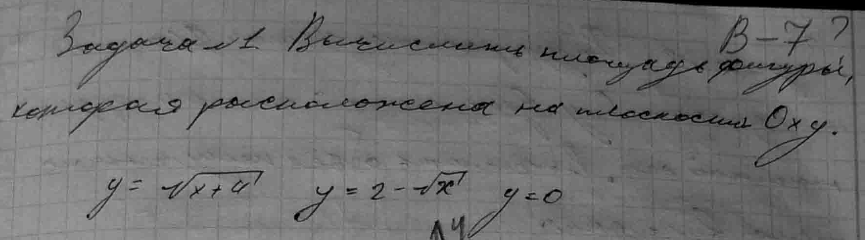 В-7?
Задача №1 Вычислить площадь фигуры,
которая расположена на плоскости Оху.
y = √x+4 y = 2-√x y=0
y